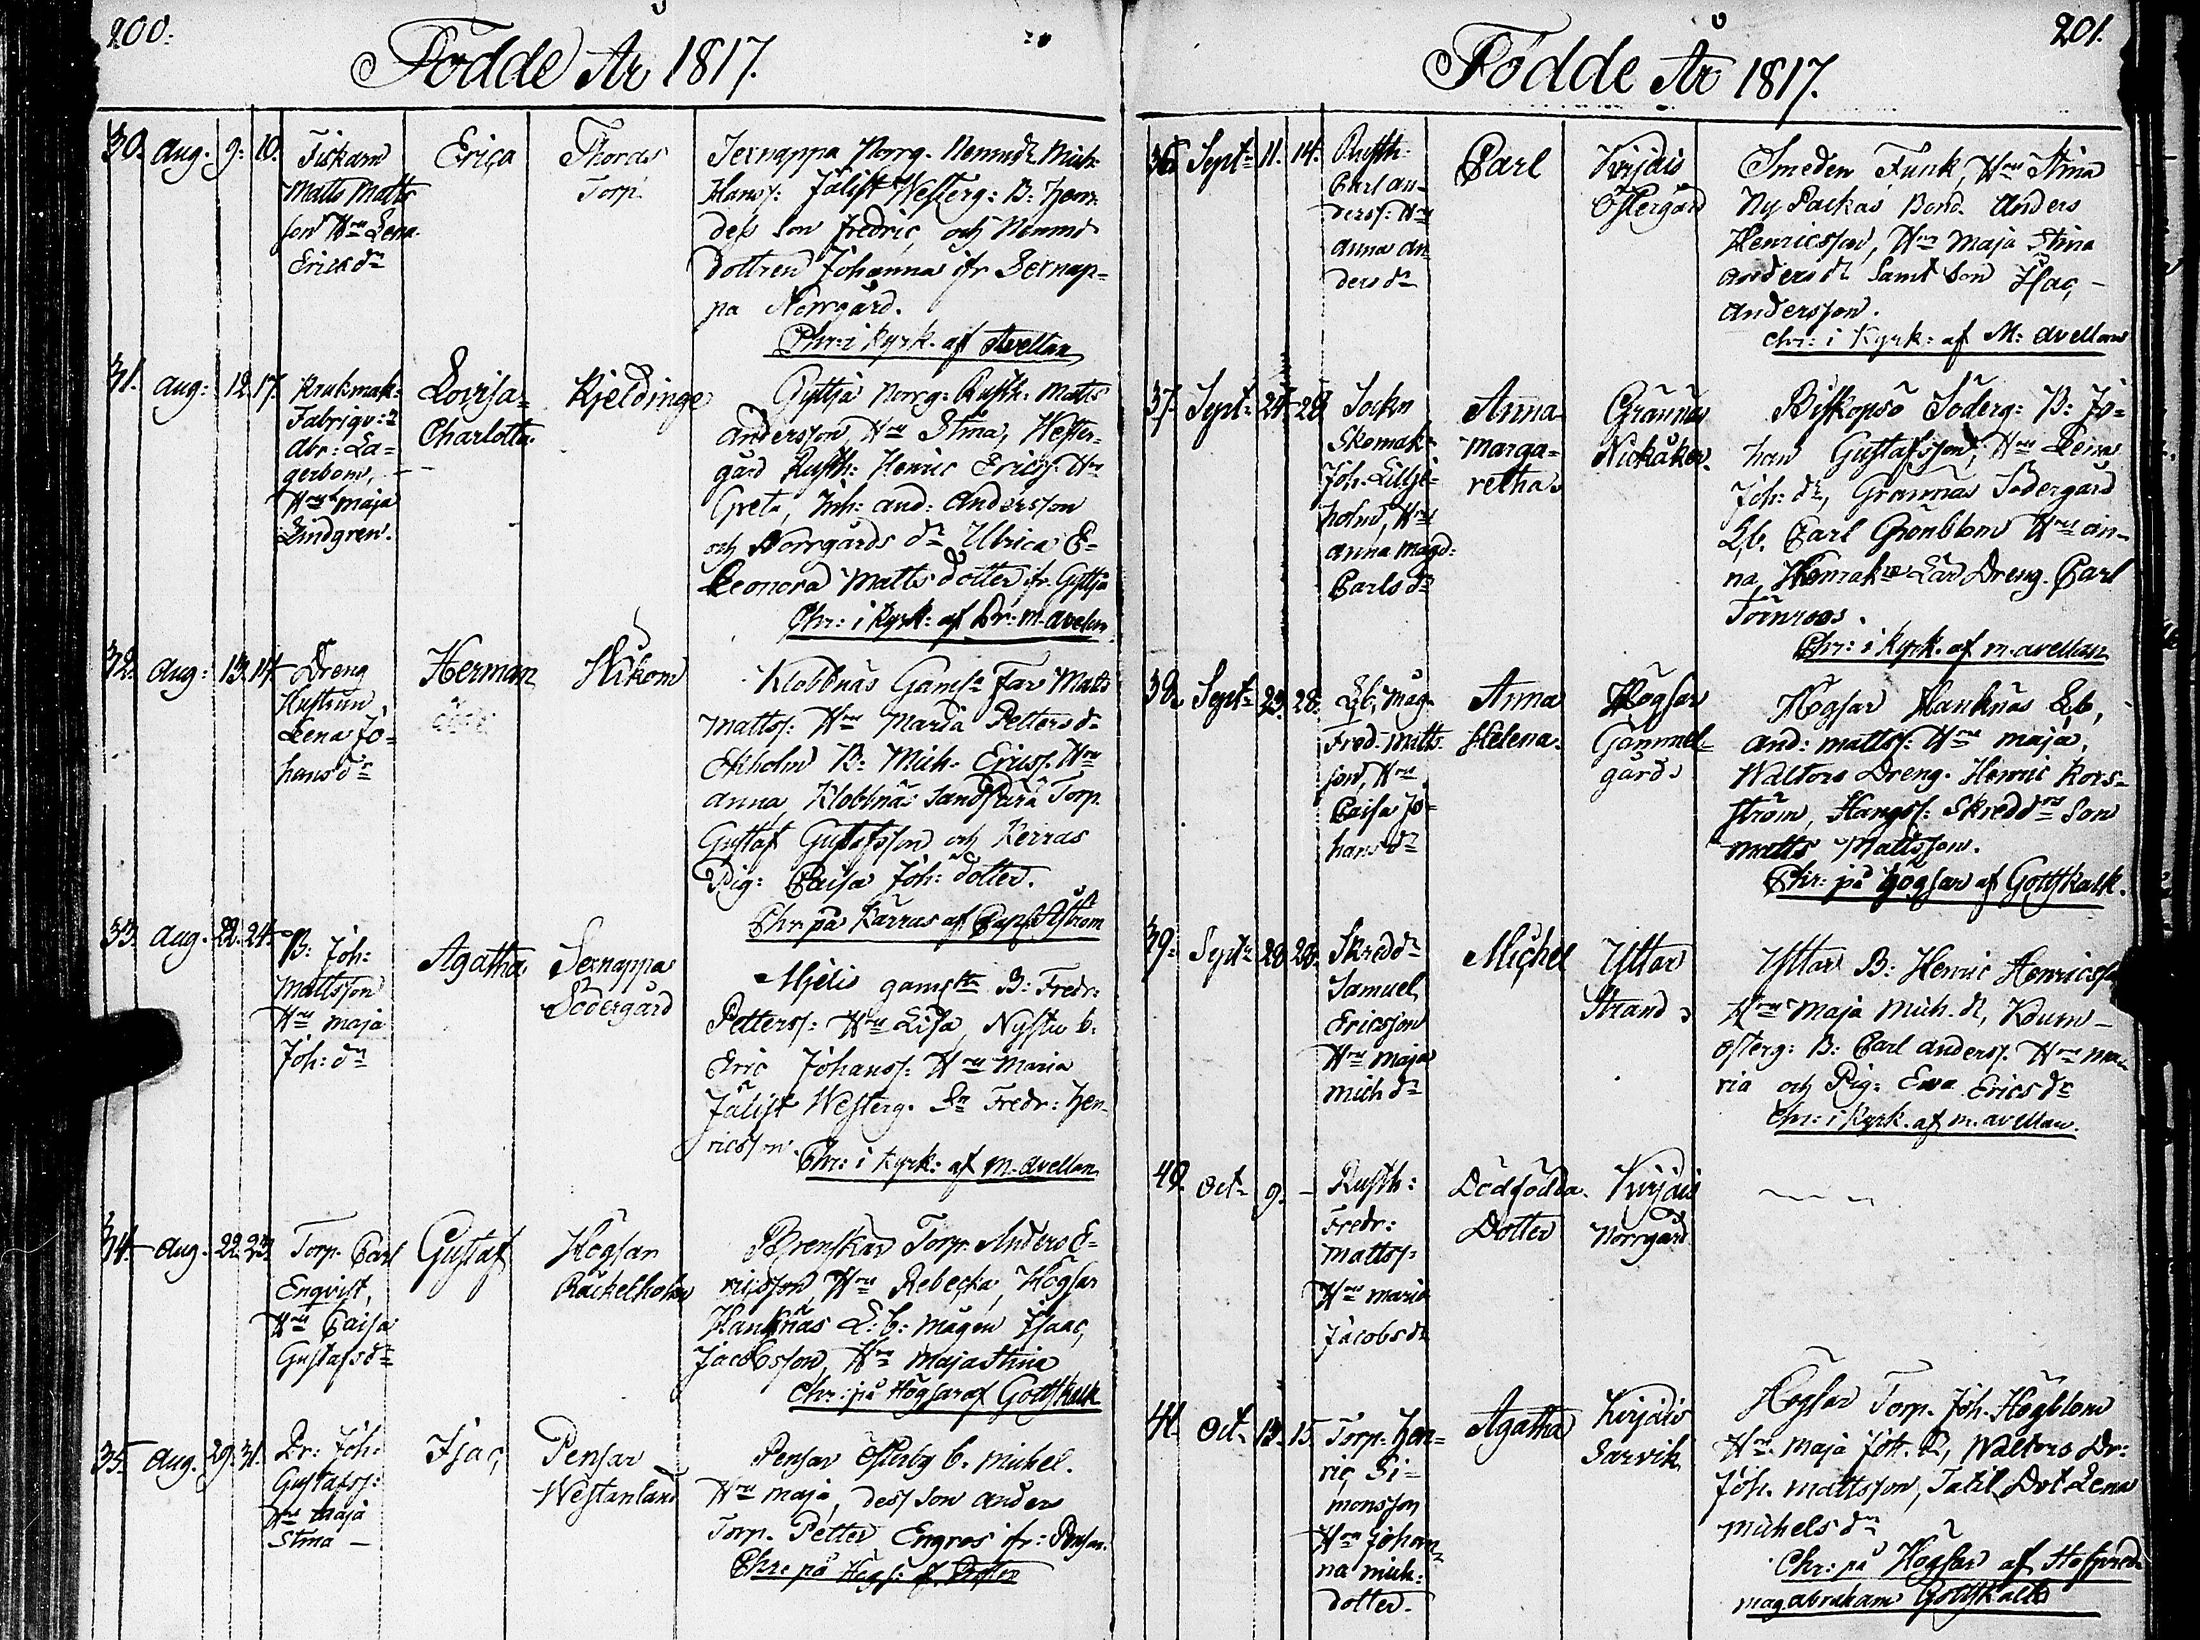 200.
Födde År 1817.
30. Aug. 9. 10.
Fiskaren
Matts Matts
son Hru Lena
Ericsdr
Erica
Thordes
Torp.
Sexnappa Norrg. Nemnd: Mich:
Hanss: Jälist Westerg: B: Hen-
des son Fredric och Nemnd-
dottren Johanna ifr Sexnap-
pa Norrgård.
Chr: i Kyrk. af Avellan
31. Aug: 12. 17.
Krukmak:
Fabriqv:
Abr: La-
gerbom,
Hru Maja
Lindgren.
Lovisa-
Charlotta.
Kjeldinge
Gyttja Norrg. Rusth. Matts
Andersson, Hru Stina, Wester-
gård Rusth: Henric Ericss. Hru
Greta, Inh: And: Andersson
och Norrgårds dr Ulrica E-
leonora Matts dotter ifr. Gyttja
Chr: i Kyrk: af Dr: M. Avellan
32. Aug: 13. 14.
Dreng
Hustrun
Lena Jo-
hansdr
Herman
Wikom
Klobbnäs Gamla Far Matts
Mattss: Hru Maria Pettersdr
Ekholm B: Mich. Ericss. Hru
Anna, Klobbnäs Sandskära Torp.
Gustaf Gustafsson och Kerras
Pig: Caisa Joh: dotter.
Chr på Kärras af Åström
33. Aug. 22. 24.
B: Joh:
Mattsson
Hru Maja
Joh: dr
Agatha
Sexnappa
Södergård
Mjelis B: Fredr:
Petterss: Hru Lisa, Nystu b.
Eric Johanss: Hru Maria
Jälist Westerg. Dr Fredr: Hen-
ricsson.
Chr: i Kyrk: af M. Avellan
34. Aug. 22. 23.
Torp. Carl
Enqvist,
Hru Caisa
Gustafsdr
Gustaf
Högsar
Räckelholm
Brenskär Torp. Anders E-
ricsson, Hru Rebecka, Högsar
Hanknäs L: b: mågen Isaac
Jacobsson, Hru Maja Stina
Chr: på Högsar af Gottskalk
35. Aug. 29. 31.
Dr: Joh:
Gustafss:
Hru Maja
Stina —
Isac
Pensar
Westanland
Pensar Österby b. Michel.
Hru Maja, dess son Anders
Torp. Petter Engros ifr: Pensar.
Chr: på Högs: af
201.
Födde År 1817.
36. Sept. 11. 14.
Rusth:
Carl An-
derss: Hru
Anna An-
dersdr
Carl
Kirjais
Östergård
Smeden Funk, Hru Stina
Ny Packas Bond. Anders
Henricsson, Hru Maja Stina
Andersdr samt son Isac
Andersson.
Chr: i Kyrk: af M: Avellan
37. Sept: 24. 28.
Sockn
Skomak:
Joh. Lillje-
holm, Hru
Anna Magd:
Carlsdr
Anna
Marga-
retha
Grännäs
Nickåker.
Biskopsö Söderg: B: Jo-
han Gustafsson, Hru Lena
Joh: dr, Grännäs Södergård
Lb. Carl Grönblom Hru An-
na, Lär Dreng. Carl
Törnroos.
Chr: i Kyrk. af M. Avellan
38. Sept: 23. 28.
Lb, Måg.
Fred. Matts-
son, Hru
Caisa Jo-
hansdr
Anna
Helena.
Högsar
Gammel-
gård
Högsar Hanknäs Lb,
And: Mattss: Hru Maja,
Waltors Dreng. Henric Kors-
ström, Hangss: Skreddrs son
Matts Mattsson.
Chr: på Högsar af Gottskalk.
39. Sept: 20. 28.
Skreddr
Samuel
Ericsson
Hru Maja
Mich dr
Michel
Yttar
Strand
Yttar B: Henric Henricss
Hru Maja Mich. dr,
Österg: B: Carl Anderss. Hru Ma-
ria och Pig: Ewa Ericsdr
Chr: i Kyrk. af M. Avellan.
40. Oct. 9. —
Rusth:
Fredr:
Mattss:
Hru Maria
Jacobsdr
Dödfödda
Dotter
Kirjais
Norrgård
41. Oct. 13. 15.
Torp. Hen-
ric Si-
monsson
Hru Johan-
na Mich:
dotter.
Agatha
Kirjais
Sarvik
Högsar Torp. Joh. Högblom
Hru Maja Joh. dr, Waltors Dr:
Joh. Mattsson, Tatil Dot Lena
Michelsdr
Chr: på Högsar af
Mag Abraham Gottskalk